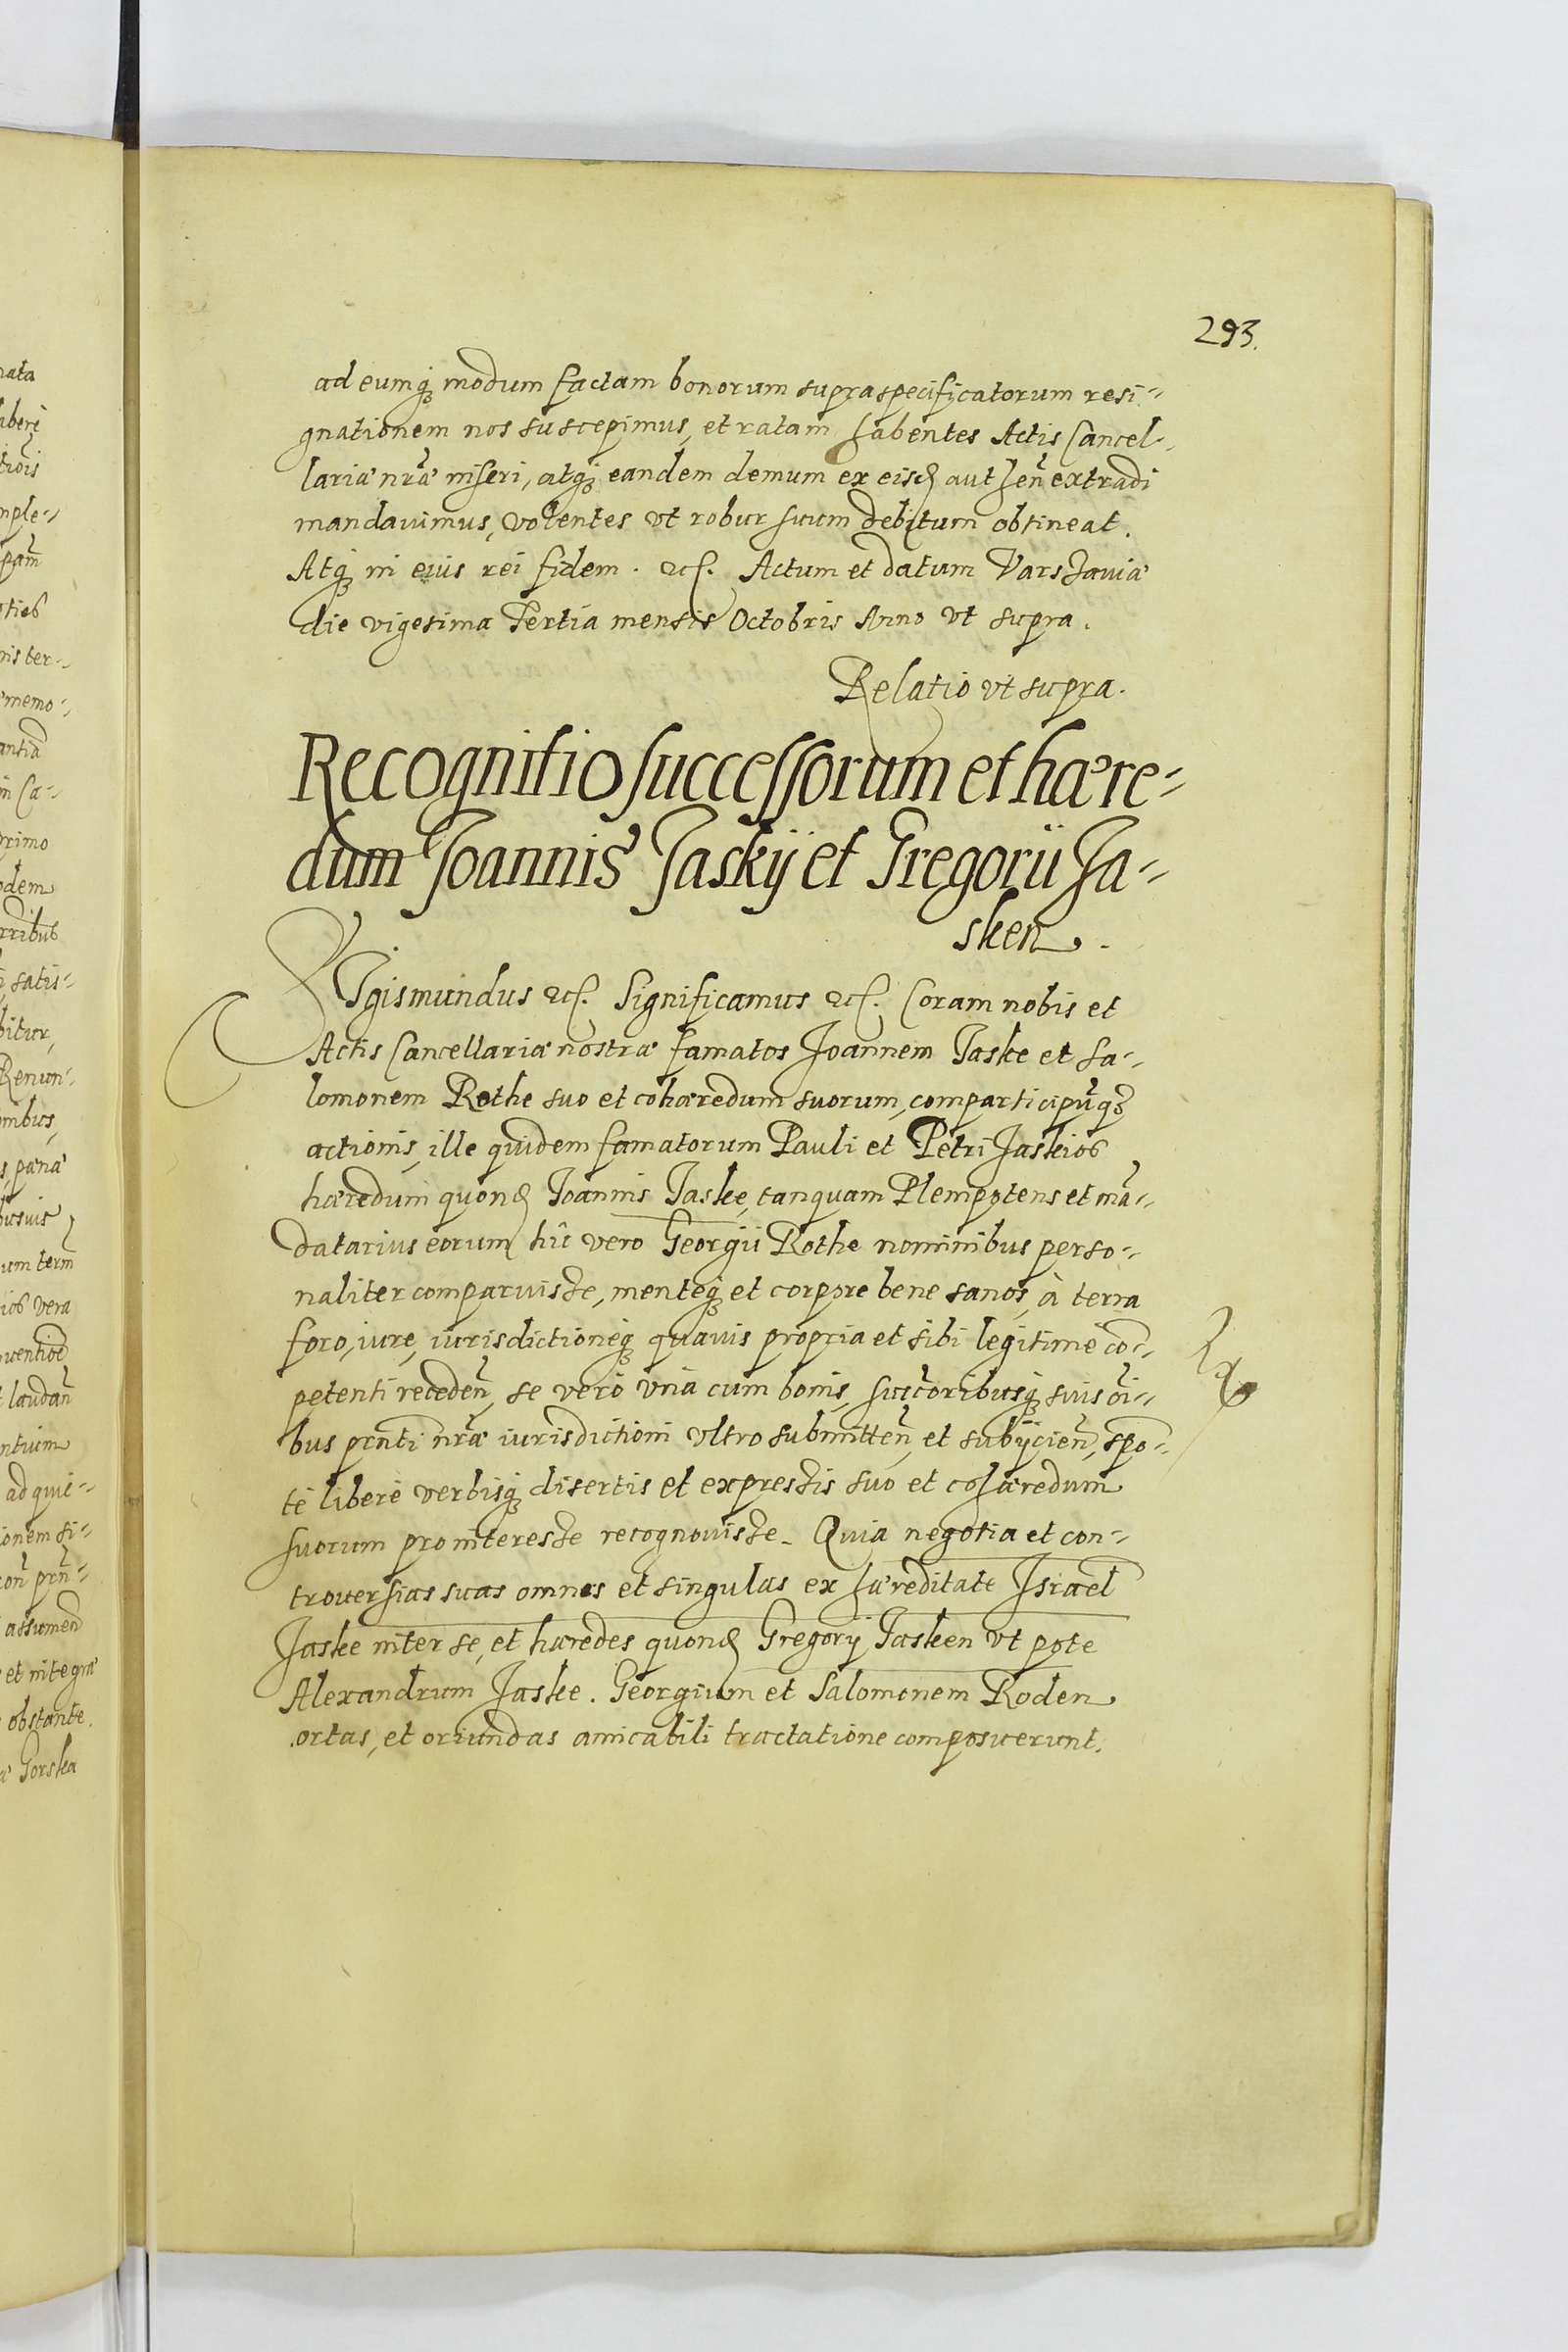 293.
ad eumq₃ modum factam bonorum supraspecificatorum resi-
gnationem nos suscepimus, et ratam habentes Actis Cancel-
lariæ nr̃æ inseri, atq₃ eandem demum ex eisd. authen̄ extradi
mandavimus, volentes vt robur suum debitum obtineat.
Atq₃ in eius rei fidem. &c. Actum et datum Varsaviæ
die vigesima Tertia mensis Octobris Anno vt supra.
Relatio vt supra.
Recognitio successorum et hære-
dum Joannis Jaskij et Gregorii Ja-
sken.
Sigismundus &c. Significamus &c. Coram nobis et
Actis Cancellariæ nostræ famatos Joannem Jaske et Sa-
lomonem Rothe suo et cohæredum suorum, comparticipũq₃
actionis, ille quidem famatorum Pauli et Petri Jaskios
hæredum quond. Joannis Jaske, tanquam Plenipotens et mã-
datarius eorum hic vero Georgii Rothe nominibus perso-
naliter comparuisse, menteq₃ et corpore bene sanos, à terra
foro, iure, iurisdictioneq₃ quavis propria et sibi legitimè cõ-
petenti receden̄, se verò vnà cum bonis, succ̃oribusq₃ suis oĩ-
bus pr̃nti nr̃æ iurisdictioni vltro submitten̄, et subijcien̄, spõ-
tè liberè verbisq₃ disertis et expressis suo et cohæredum
suorum pro interesse recognovisse. Quia negotia et con-
troversias suas omnes et singulas ex hæreditate Israel
Jaske inter se, et hæredes quond. Gregorij Jasken vt pote
Alexandrum Jaske. Georgium et Salomonem Roden
ortas, et oriundas amicabili tractatione composuerunt.
nata
tiõis
mple-
memo-
in Ca-
primo
odem
satis-
bitur,
Renun-
um term̃
vera
laudan̄
ad quie-
ionem si-
assumend
et integræ
obstante.
Gorska